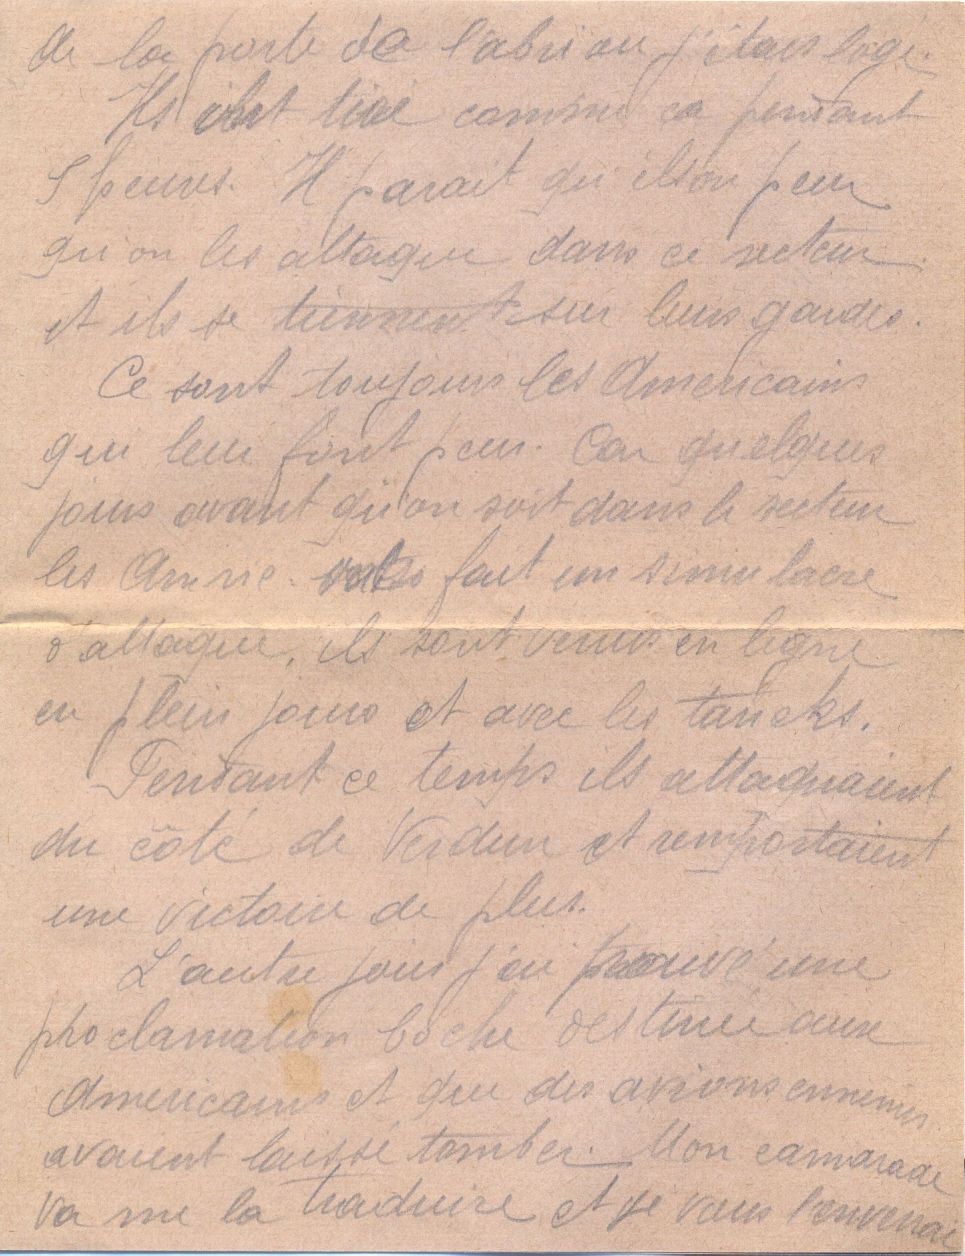 de la porte de l'abri ou j'étais logé.
Ils ont tiré comme ca pendant
5 heures. Il parait qu'ils on peur
qu'on les attaque dans ce secteur
et ils se tiennent sur leurs gardes.
Ce sont toujours les Americains
qui leur font peur. Car quelques
jours avant qu'on soit dans le secteur
les Améric. ont fait un simulacre
d'attaque, ils sont venus en ligne
en plein jours et avec les tancks.
Pendant ce temps ils attaquaient
du côté de Verdun et remportaient
une victoire de plus.
L'autre jour j'ai trouvé une
proclamation boche destinée aux
Americains et que des avions ennemis
avaient laissé tomber. Mon camarade
va me la traduire et je vous l'enverrai